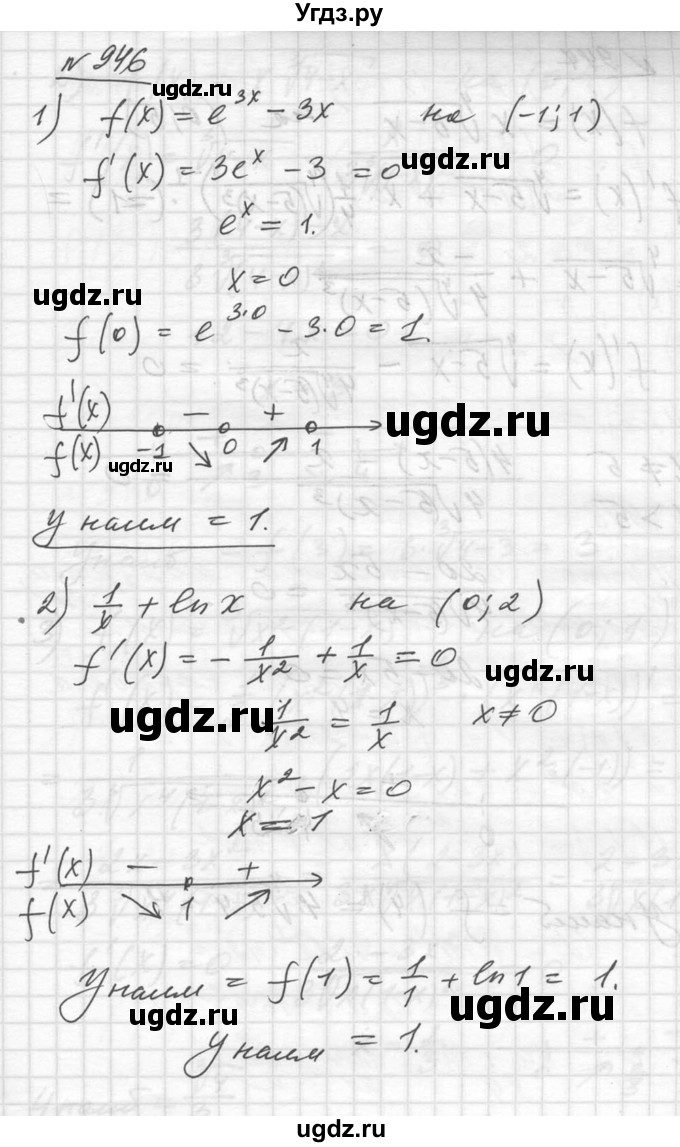 Угдз.ру
№ 946
1) f(x) = e^{3x} - 3x на (-1; 1)
ugdz.ru
f'(x) = 3e^x - 3 = 0
e^x = 1.
x = 0
ugdz.ru
f(0) = e^{3·0} - 3·0 = 1.
f'(x) - +
ugdz.ru
f(x) -1 ↘ 0 ↗ 1
ugdz.ru
y наим = 1.
2) 1/x + ln x на (0; 2)
f'(x) = - 1/x² + 1/x = 0
ugdz.ru
ugdz.ru
1/x² = 1/x x ≠ 0
x² - x = 0
x = 1
ugdz.ru
f'(x) - +
f(x) ↘ 1 ↗
y наим = f(1) = 1/1 + ln 1 = 1.
ugdz.ru
ugdz.ru
y наим = 1.
ugdz.ru
ugdz.ru